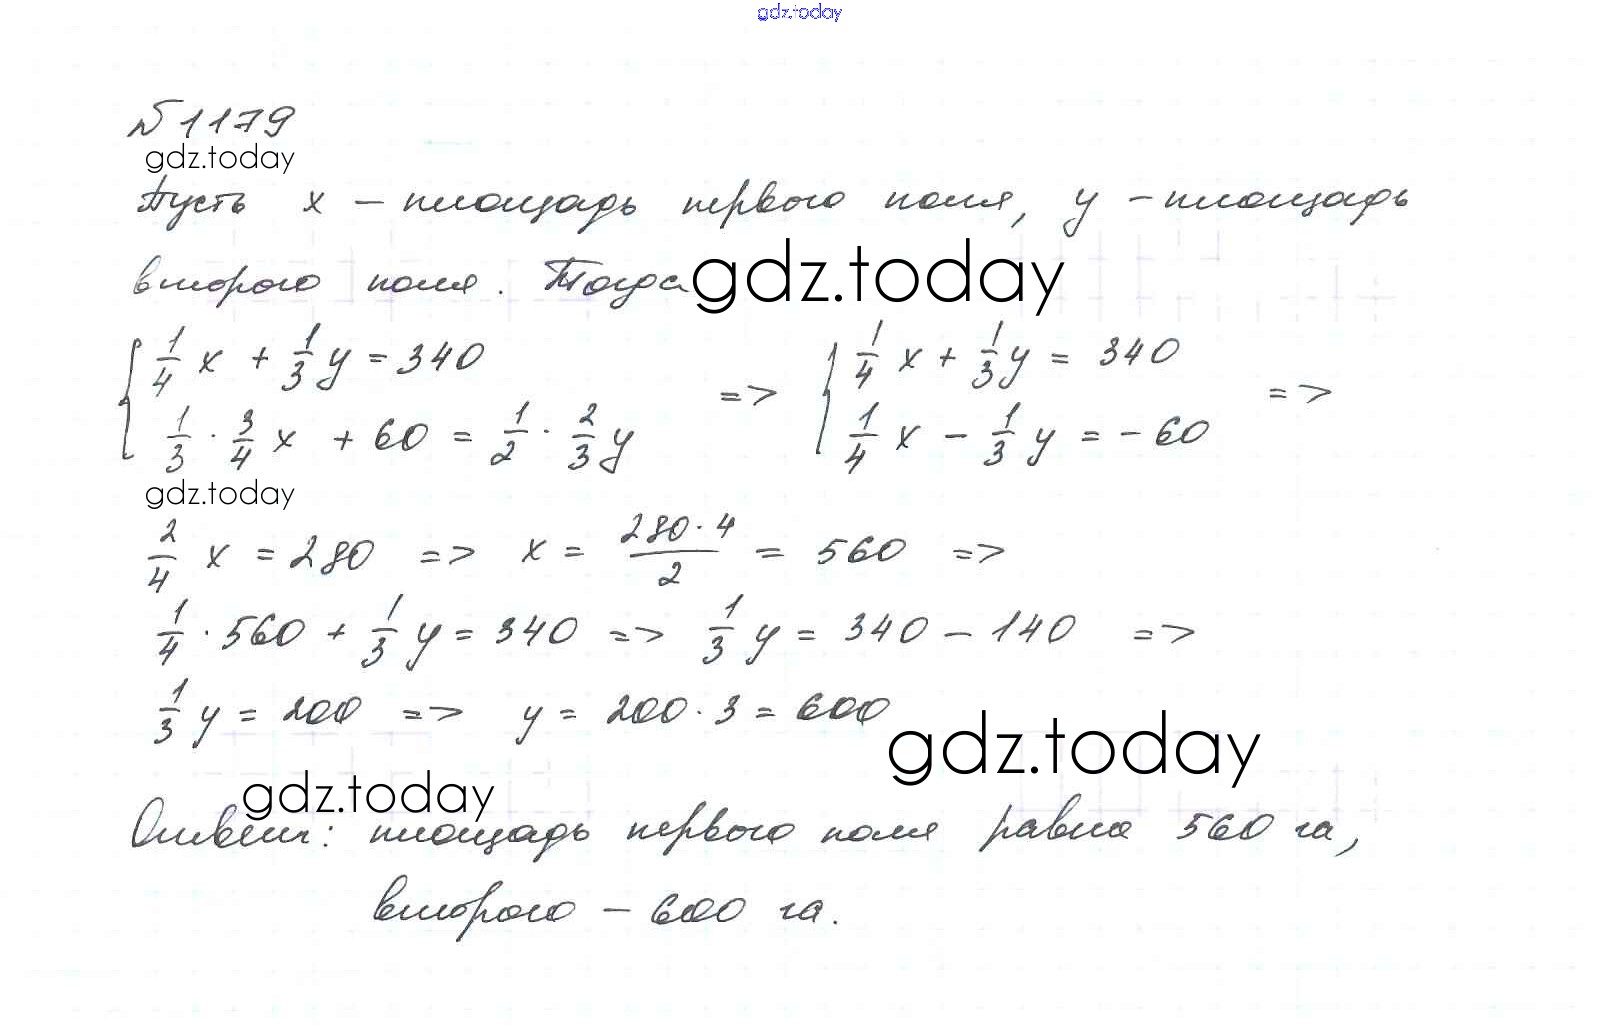 gdz.today
№ 1179
gdz.today
Пусть x – площадь первого поля, y – площадь
второго поля. Тогда gdz.today
{ 1/4 x + 1/3 y = 340 => { 1/4 x + 1/3 y = 340 =>
1/3 · 3/4 x + 60 = 1/2 · 2/3 y 1/4 x – 1/3 y = – 60
gdz.today
2/4 x = 280 => x = 280 · 4 / 2 = 560 =>
1/4 · 560 + 1/3 y = 340 => 1/3 y = 340 – 140 =>
1/3 y = 200 => y = 200 · 3 = 600
gdz.today
gdz.today
Ответ: площадь первого поля равна 560 га,
второго – 600 га.